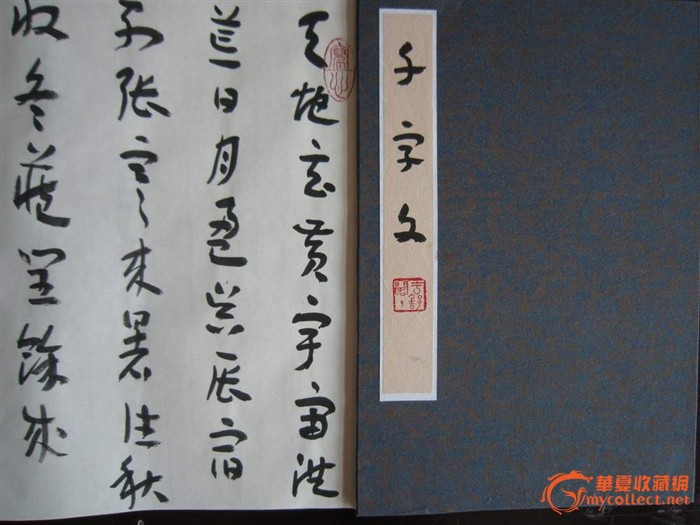 千字文
天地玄黄宇宙洪
荒日月盈昃辰宿
列张寒来暑往秋
收冬藏闰馀成
華夏收藏網
mycollect.net